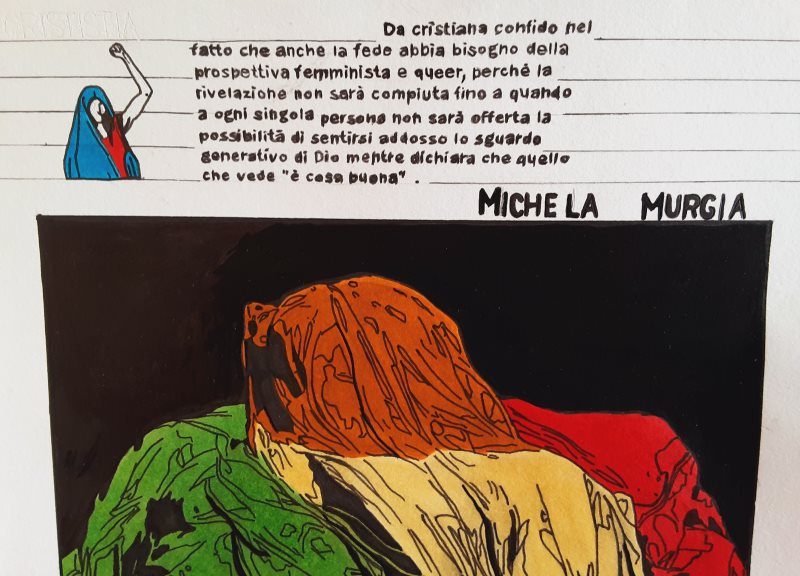 Da cristiana confido nel
fatto che anche la fede abbia bisogno della
prospettiva femminista e queer, perché la
rivelazione non sarà compiuta fino a quando
a ogni singola persona non sarà offerta la
possibilità di sentirsi addosso lo sguardo
generativo di Dio mentre dichiara che quello
che vede "è cosa buona".
MICHELA MURGIA